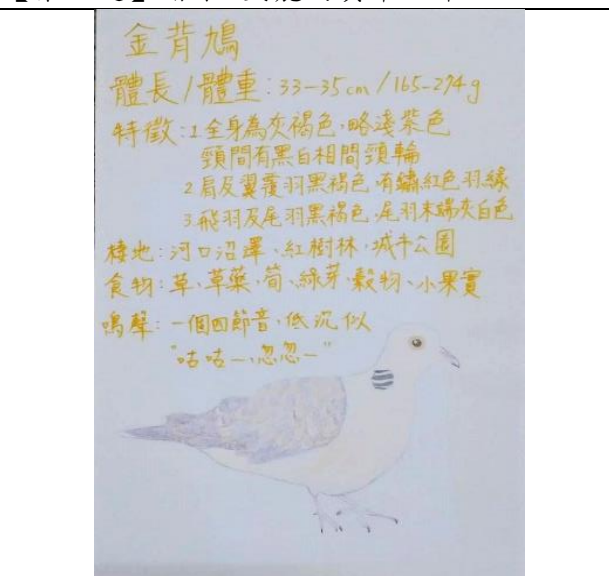 金背鳩
體長/體重:33-35cm/165-274g
特徵:1全身為灰褐色,略淺紫色
頸間有黑白相間頸輪
2肩及翼覆羽黑褐色,有鏽紅色羽緣
3.飛羽及尾羽黑褐色,尾羽末端灰白色
棲地:河口沼澤、紅樹林、城市公園
食物:草、草葉、筍、綠芽、穀物、小果實
鳴聲:一個四節音,低沉似
"咕咕—,忽忽—"